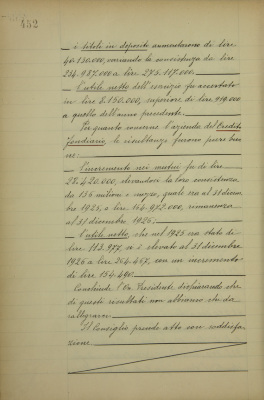 452
i titoli in deposito aumentarono di lire
40.130.000, variando la consistenza da lire
234.987.000 a lire 275.117.000.
L'utile netto dell'esercizio fu accertato
in lire 8.150.000, superiore di lire 919.000
a quello dell'anno precedente.
Per quanto concerne l'azienda del Credito
Fondiario, le risultanze furono pure buo
ne:
L'incremento nei mutui fu di lire
28.420.000, elevandosi la loro consistenza
da 136 milioni e mezzo, quale era al 31 dicem
bre 1925, a lire 164.972.000, rimanenza
al 31 dicembre 1926;
L'utile netto, che nel 1925 era stato di
lire 113.977, si è elevato al 31 dicembre
1926 a lire 264.467, con un incremento
di lire 150.490.
Conclude l'On. Presidente, dichiarando che
di questi risultati non abbiamo che da
rallegrarci.
Il Consiglio prende atto con soddisfa
zione